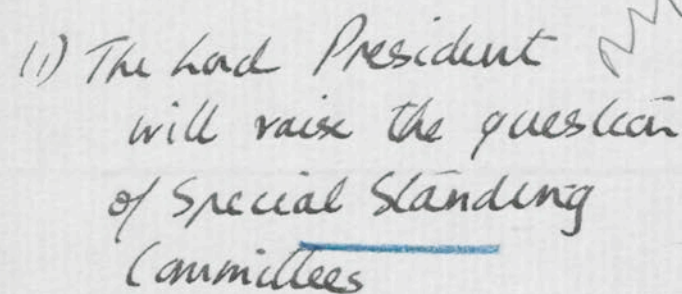 (1) The Lord President
will raise the question
of Special Standing
Committees